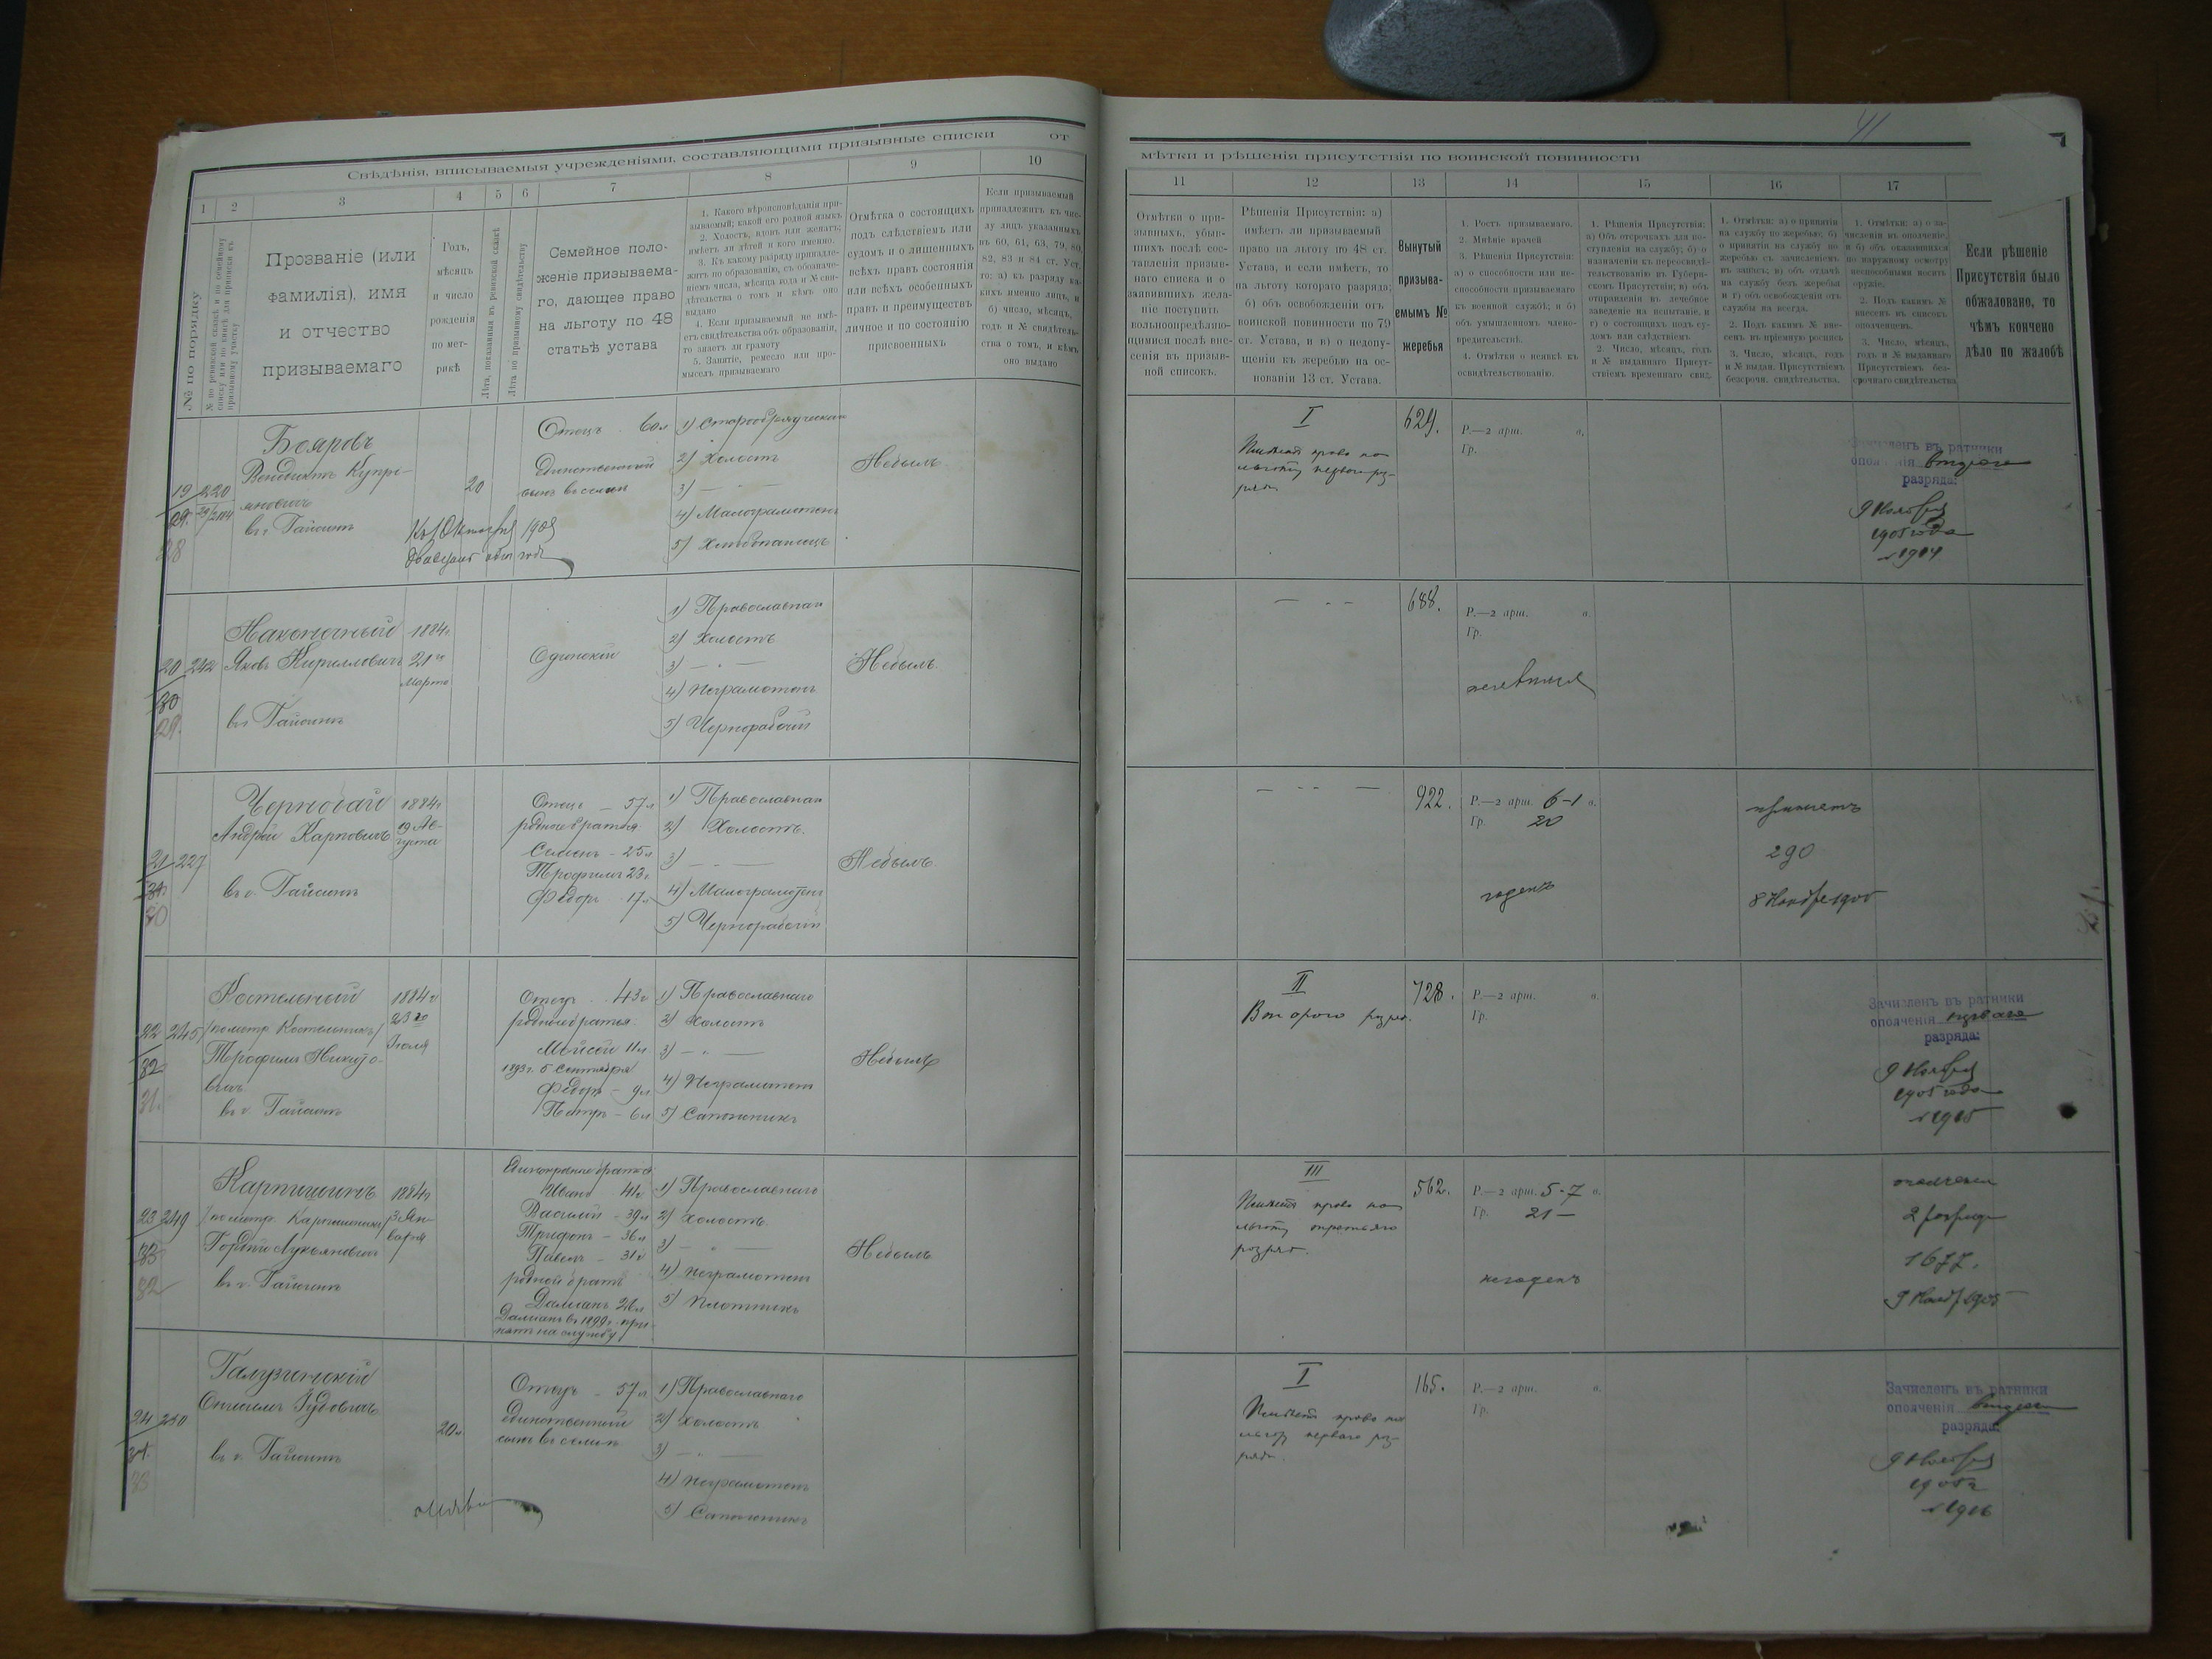 Свѣдѣнія, вписываемыя учрежденіями, составляющими призывные списки
от
1 2 3 4 5 6 7 8 9 10
№ по порядку
№ по ревизской сказкѣ и по семейному списку или по книгѣ для приписки къ призывному участку
Прозваніе (или
фамилія), имя
и отчество
призываемаго
Годъ,
мѣсяцъ
и число
рожденія
по мет-
рикѣ
Лѣта, показанныя въ ревизской сказкѣ
Лѣта по призывному свидѣтельству
Семейное поло-
женіе призываема-
го, дающее право
на льготу по 48
статьѣ устава
1. Какого вѣроисповѣданія при-
зываемый; какой его родной языкъ
2. Холостъ, вдовъ или женатъ;
имѣетъ ли дѣтей и кого именно.
3. Къ какому разряду принадле-
житъ по образованію, съ обозначе-
ніемъ числа, мѣсяца, года и № сви-
дѣтельства о томъ и кѣмъ оно
выдано
4. Если призываемый не имѣ-
етъ свидѣтельства объ образованіи,
то знаетъ ли грамоту
5. Занятіе, ремесло или про-
мыселъ призываемаго
Отмѣтка о состоящихъ
подъ слѣдствіемъ или
судомъ и о лишенныхъ
всѣхъ правъ состоянія
или всѣхъ особенныхъ
правъ и преимуществъ
лично и по состоянію
присвоенныхъ
Если призываемый
принадлежитъ къ чис-
лу лицъ указанныхъ
въ 60, 61, 63, 79, 80,
82, 83 и 84 ст. Уст.
то: а) къ разряду ка-
кихъ именно лицъ, и
б) число, мѣсяцъ,
годъ и № свидѣтель-
ства о томъ, и кѣмъ
оно выдано
19 220
29.
28
Бояровъ
Венедиктъ Купри-
яновичъ
въ г. Гайсинѣ
20
Отецъ 60 л
Единственный
сынъ въ семьи
1) Старообрядческаго
2) Холостъ
3) — " —
4) Малограмотенъ
5) Хлѣбопашецъ
Небылъ
20 242
30
29.
Наконечный
Яковъ Кирилловичъ
въ г. Гайсинѣ
1884 г.
21 го
Марта
Одинокій
1) Православнаго
2) Холостъ
3) — " —
4) Неграмотенъ
5) Чернорабочій
Небылъ.
21 227
31.
30
Андрей Карповичъ
въ г. Гайсинѣ
1884 г
19 Ав-
густа
Отецъ — 57 л
родные братья:
Семенъ - 25 л
Трофимъ 23 г.
Федоръ 17 л
1) Православнаго
2) Холостъ.
3) — " —
4) Малограмотенъ
5) Чернорабочій
Небылъ.
22 245
32
31.
Костельный
/по метр. Костельникъ/
Трофимъ Никито-
вичъ
въ г. Гайсинѣ
1884 г
23 го
Іюля
Отецъ 43 г
родные братья:
Мойсей 11 л
1893 г. 5 Сентября
Федоръ — 9 л
Петръ — 6 л
1) Православнаго
2) Холостъ
3) — " —
4) Неграмотенъ
5) Сапожникъ
Небылъ
23 249
33
32
Карпишинъ
Гордій Лукьяновичъ
въ г. Гайсинѣ
1884 г
3 Ян-
варя
Единокровные братья
Иванъ 41 г
Василій — 39 л
Трифонъ — 36 л
Павелъ — 31 г
родной братъ
Даміанъ 26 л
Даміанъ въ 1899 г. при-
нятъ на службу
1) Православнаго
2) Холостъ.
3) — " —
4) Неграмотенъ
5) Плотникъ
Небылъ
24 250
34.
33
въ г. Гайсинѣ
20 л.
Отецъ — 57 л
Единственный
сынъ въ семьи
1) Православнаго
2) Холостъ
3) — " —
4) Неграмотенъ
5) Сапожникъ
41
мѣтки и рѣшенія присутствія по воинской повинности
11 12 13 14 15 16 17
Отмѣтки о при-
званныхъ, убыв-
шихъ послѣ сос-
тавленія призыв-
наго списка и о
заявившихъ жела-
ніе поступить
вольноопредѣляю-
щимися послѣ вне-
сенія въ призыв-
ной списокъ.
Рѣшенія Присутствія: а)
имѣетъ ли призываемый
право на льготу по 48 ст.
Устава, и если имѣетъ, то
на льготу котораго разряда;
б) объ освобожденіи отъ
воинской повинности по 79
ст. Устава, и в) о недопу-
щеніи къ жеребью на ос-
нованіи 13 ст. Устава.
Вынутый
призыва-
емымъ №
жеребья
1. Ростъ призываемаго.
2. Мнѣніе врачей
3. Рѣшенія Присутствія:
а) о способности или не-
способности призываемаго
къ военной службѣ; и б)
объ умышленномъ члено-
вредительствѣ.
4. Отмѣтки о неявкѣ къ
освидѣтельствованію.
1. Рѣшенія Присутствія:
а) Объ отсрочкахъ для по-
ступленія на службу; б) о
назначеніи къ переосвидѣ-
тельствованію въ Губерн-
скомъ Присутствіи; в) объ
отправленіи въ лечебное
заведеніе на испытаніе, и
г) о состоящихъ подъ су-
домъ или слѣдствіемъ.
2. Число, мѣсяцъ, годъ
и № выданнаго Присутст-
віемъ временнаго свид.
1. Отмѣтки: а) о принятіи
на службу по жеребью; б)
о принятіи на службу по
жеребью съ зачисленіемъ
въ запасъ; в) объ отдачѣ
на службу безъ жеребья
и г) объ освобожденіи отъ
службы на всегда.
2. Подъ какимъ № вне-
сенъ въ пріемную роспись
3. Число, мѣсяцъ, годъ
и № выдан. Присутствіемъ
безсрочн. свидѣтельства.
1. Отмѣтки: а) о за-
численіи въ ополченіе,
и б) объ оказавшихся
по наружному осмотру
неспособными носить
оружіе.
2. Подъ какимъ №
внесенъ въ списокъ
ополченцевъ.
3. Число, мѣсяцъ,
годъ и № выданнаго
Присутствіемъ без-
срочнаго свидѣтельства
Если рѣшеніе
Присутствія было
обжаловано, то
чѣмъ кончено
дѣло по жалобѣ
I
629.
Р.—2 арш. в.
Гр.
Зачисленъ въ ратники
ополченія втораго
разряда:
9 Ноября
1905 года
№ 1904
688.
Р.—2 арш. в.
Гр.
неявился
922.
Р.—2 арш. 6-1 в.
Гр. 20
годенъ
принятъ
290
8 Ноября 1905
II
Второго разр.
728.
Р.—2 арш. в.
Гр.
Зачисленъ въ ратники
ополченія перваго
разряда:
9 Ноября
1905 года
№ 1905
III
562.
Р.—2 арш. 5-7 в.
Гр. 21 —
негоденъ
2 разряда
1677.
9 Ноября 1905
I
165.
Р.—2 арш. в.
Гр.
Зачисленъ въ ратники
ополченія втораго
разряда:
9 Ноября
1905 г
№ 1906